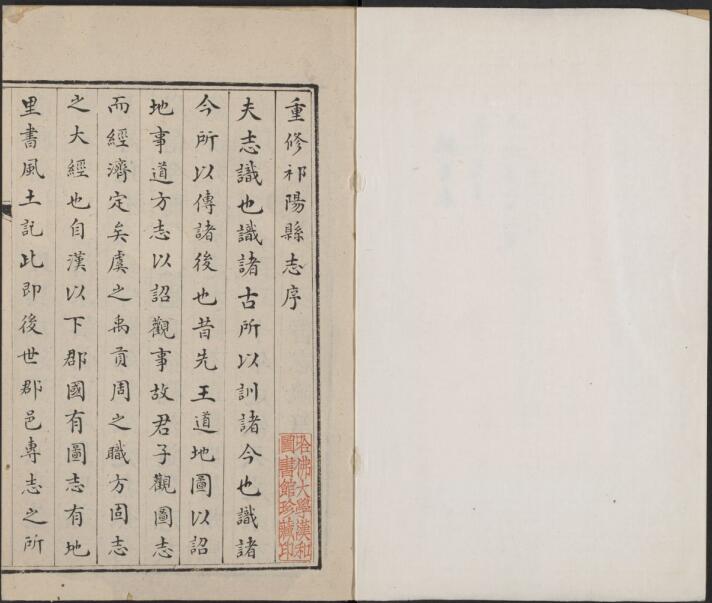 重修祁陽縣志序
夫志識也識諸古所以訓諸今也識諸
今所以傳諸後也昔先王道地圖以詔
地事道方志以詔觀事故君子觀圖志
而經濟定矣虞之禹貢周之職方固志
之大經也自漢以下郡國有圖志有地
里書風土記此即後世郡邑專志之所
哈佛大學漢和
圖書館珍藏印